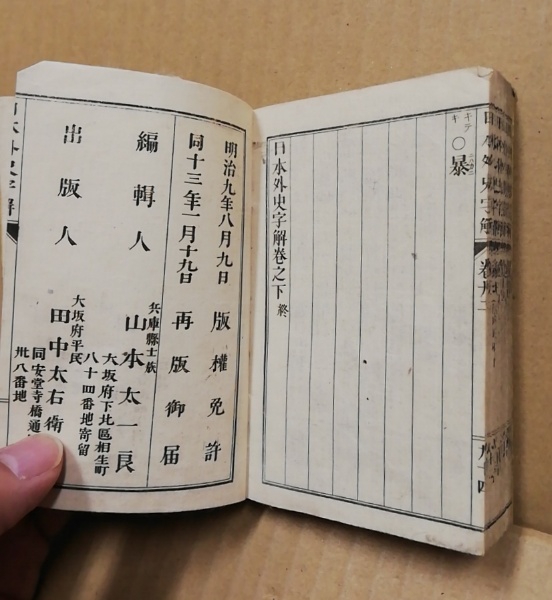 キテ
キ
○暴
日本外史字解卷之下 終
日本外史字解
卷廿二
九十四
明治九年八月九日 版權免許
同十三年一月十九日 再版御届
編輯人
兵庫縣士族
山本太一良
大坂府下北區相生町
八十四番地寄留
出版人
大坂府平民
田中太右衛
同安堂寺橋通
卅八番地
日本外史字解